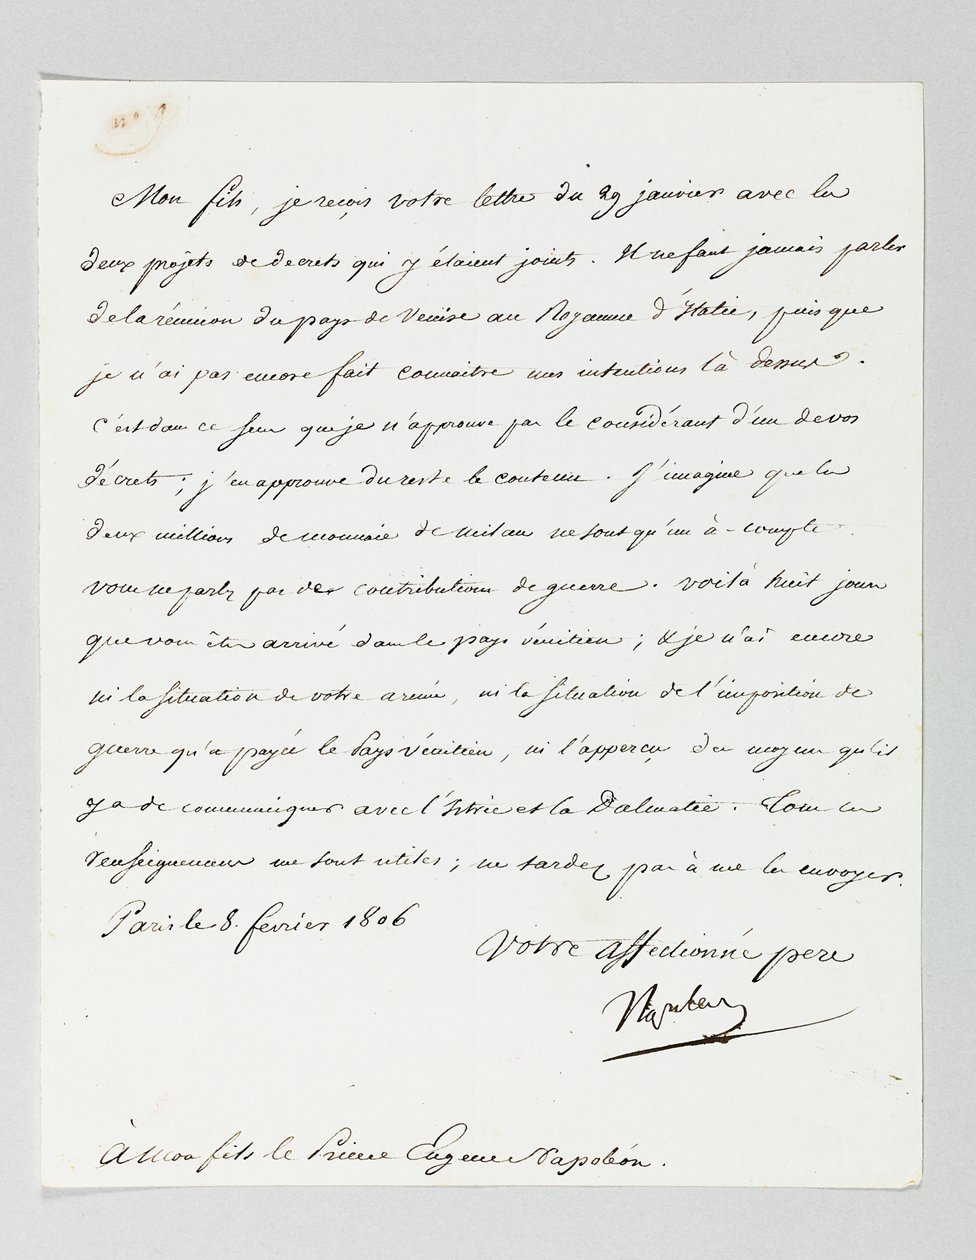 N° 9
Mon fils, je reçois votre lettre du 29 janvier avec les
deux projets de decrets qui y étaient joints. Il ne faut jamais parler
de la réunion du pays de Venise au Royaume d'Italie, puisque
je n'ai pas encore fait connaitre mes intentions là dessus.
c'est dans ce sens que je n'approuve pas le considérant d'un de vos
décrets; j'en approuve du reste le contenu. J'imagine que les
deux millions de monnaie de milan ne sont qu'un à-compte
vous ne parlez pas des contributions de guerre. voilà huit jours
que vous êtes arrivé dans le pays vénitien; & je n'ai encore
ni la situation de votre armée, ni la situation de l'imposition de
guerre qu'a payée le Pays vénitien, ni l'apperçu des moyens qu'il
y a de communiquer avec l'Istrie et la Dalmatie. Tous ces
renseignemens me sont utiles; ne tardez pas à me les envoyer.
Paris le 8. fevrier 1806
Votre affectionné pere
Napoleon
à mon fils le Prince Eugene Napoléon.